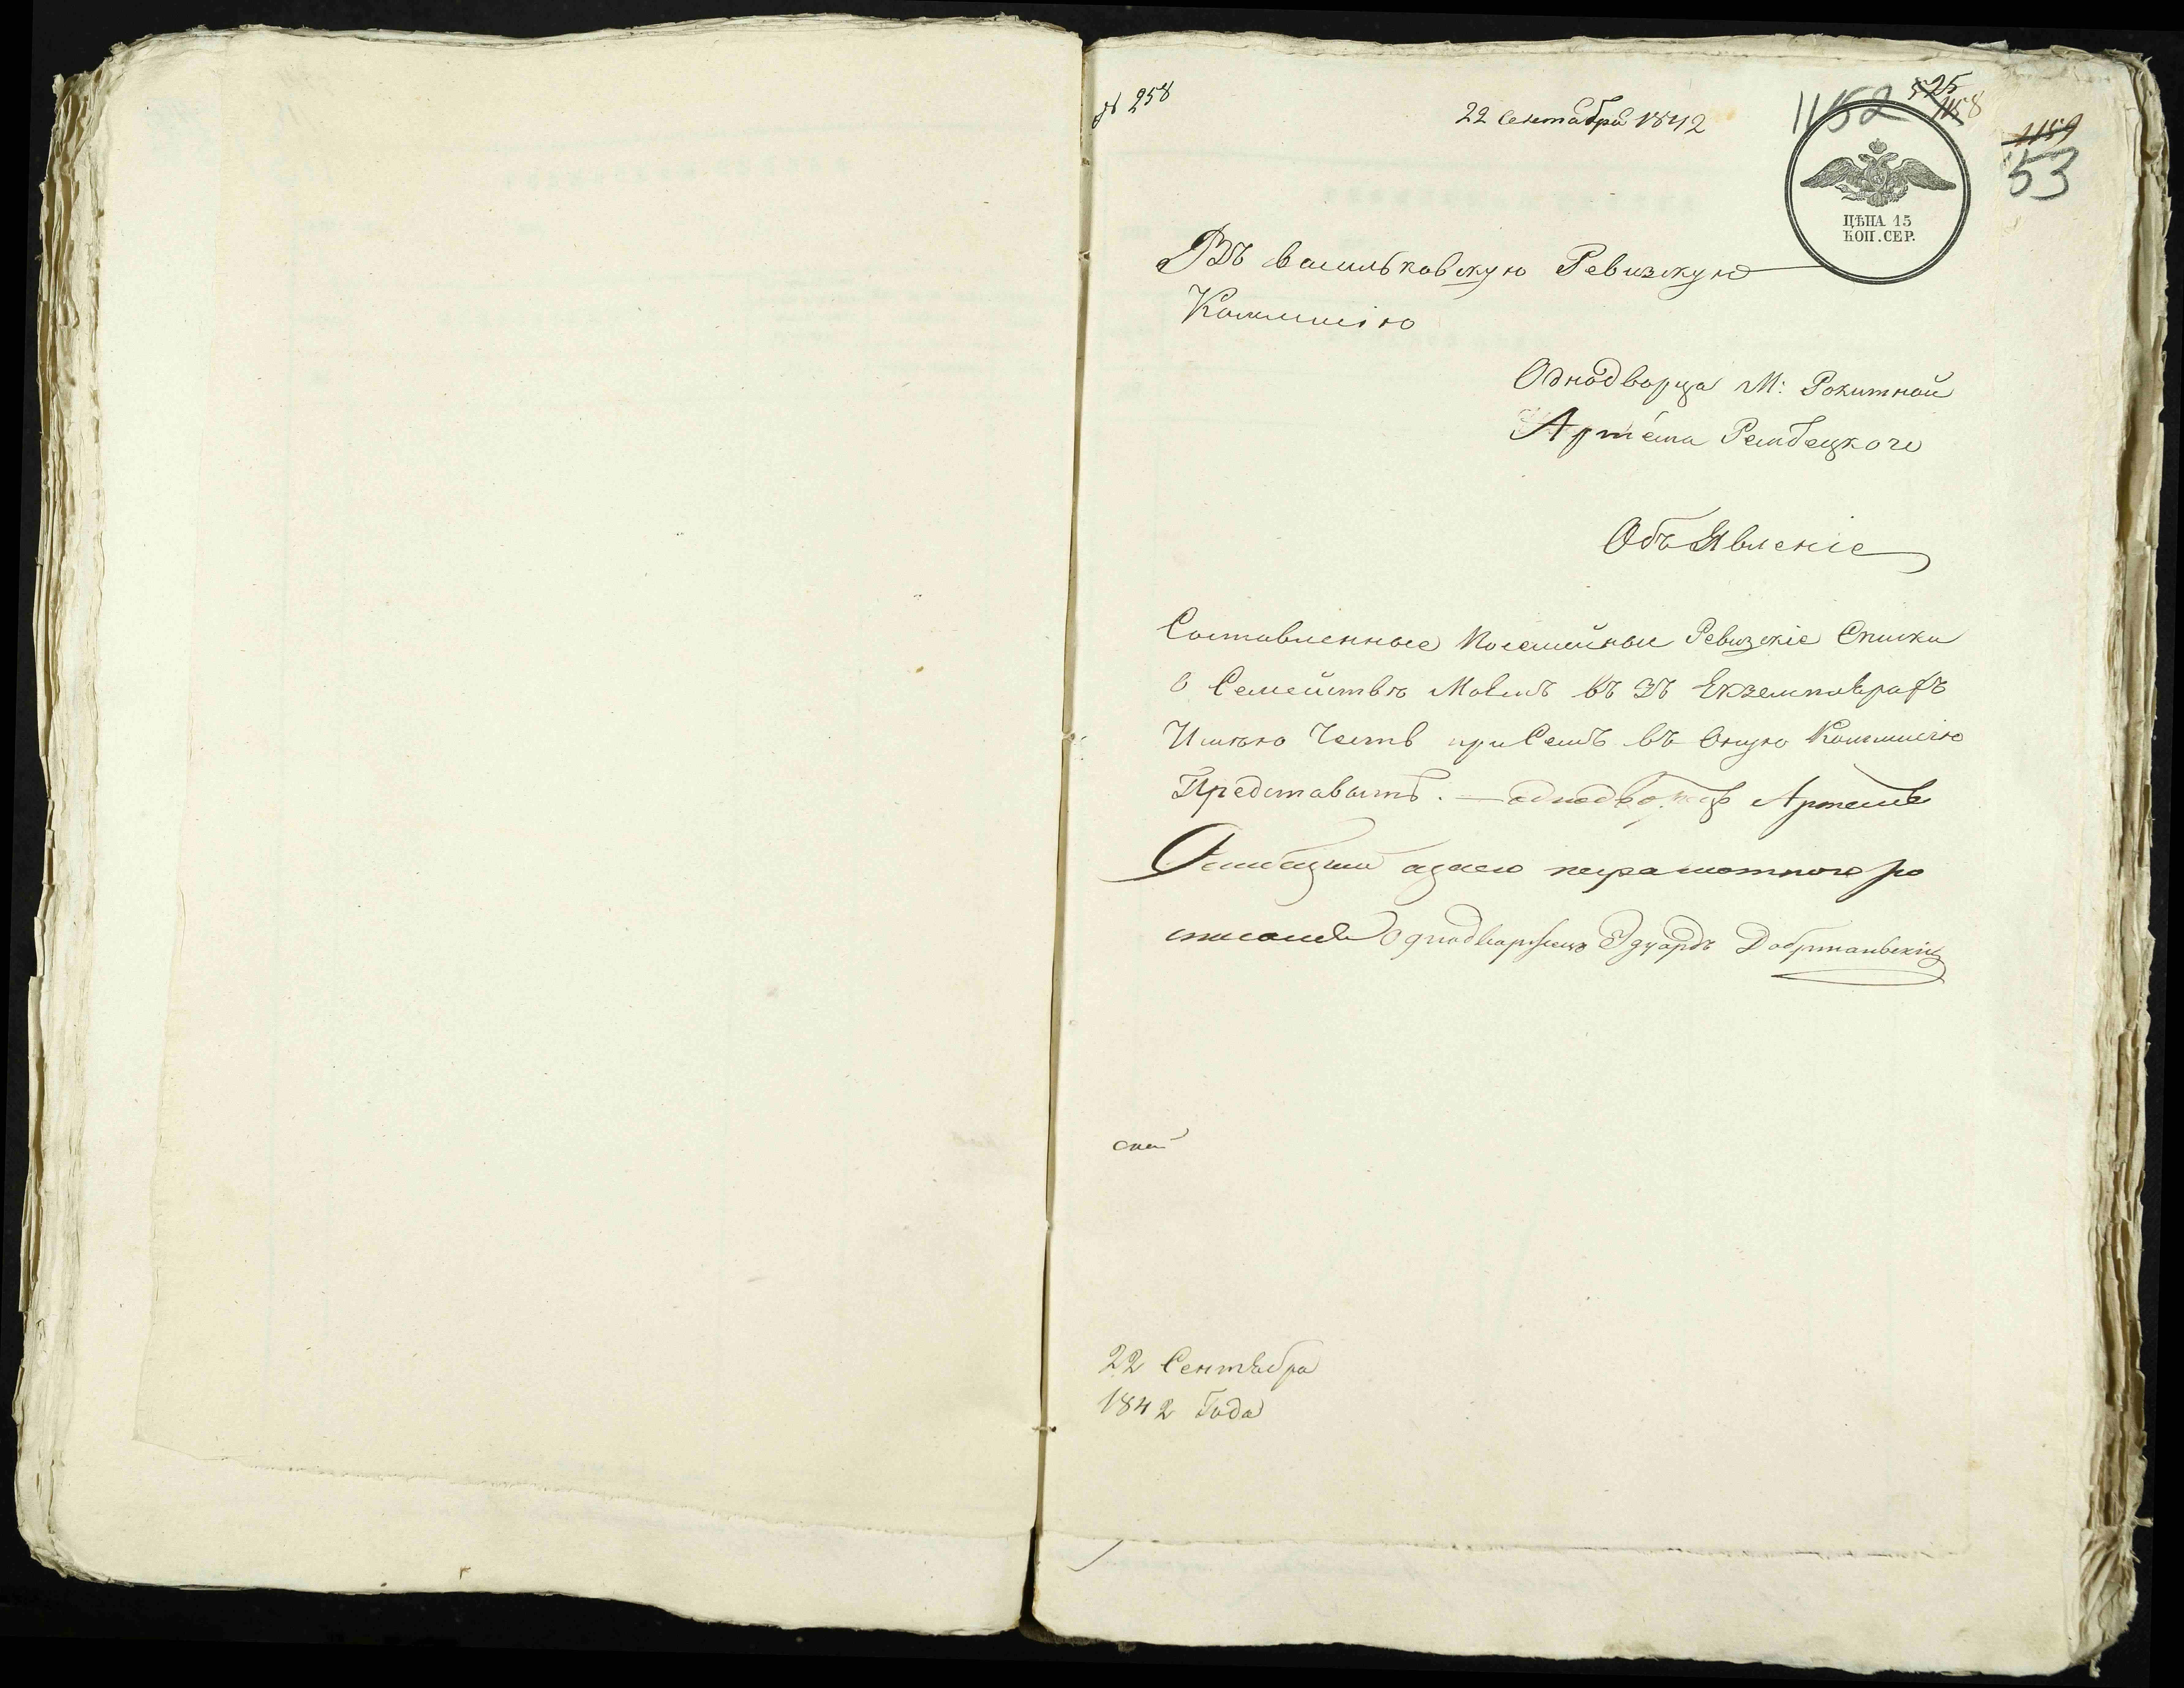 № 258
22 Сентабра 1842
1152
525
1158
1159
53
ЦѢНА 15
КОП. СЕР.
Въ васильковскую Ревизкую
Коммисію
Однодворца М: Рокитной
Артема Рембецкого
Объявленіе
Составленные Посемейные Ревизкіе Списки
о Семействѣ Моемъ въ 3хъ Екземплярахъ
Имѣю Честь при Семъ въ Оную Коммисію
Представить. — однодворецъ Артемъ
Рембецкий аза его неграмотного ро
списался Однодворжецъ Эдуардъ
22 Сентября
1842 Года